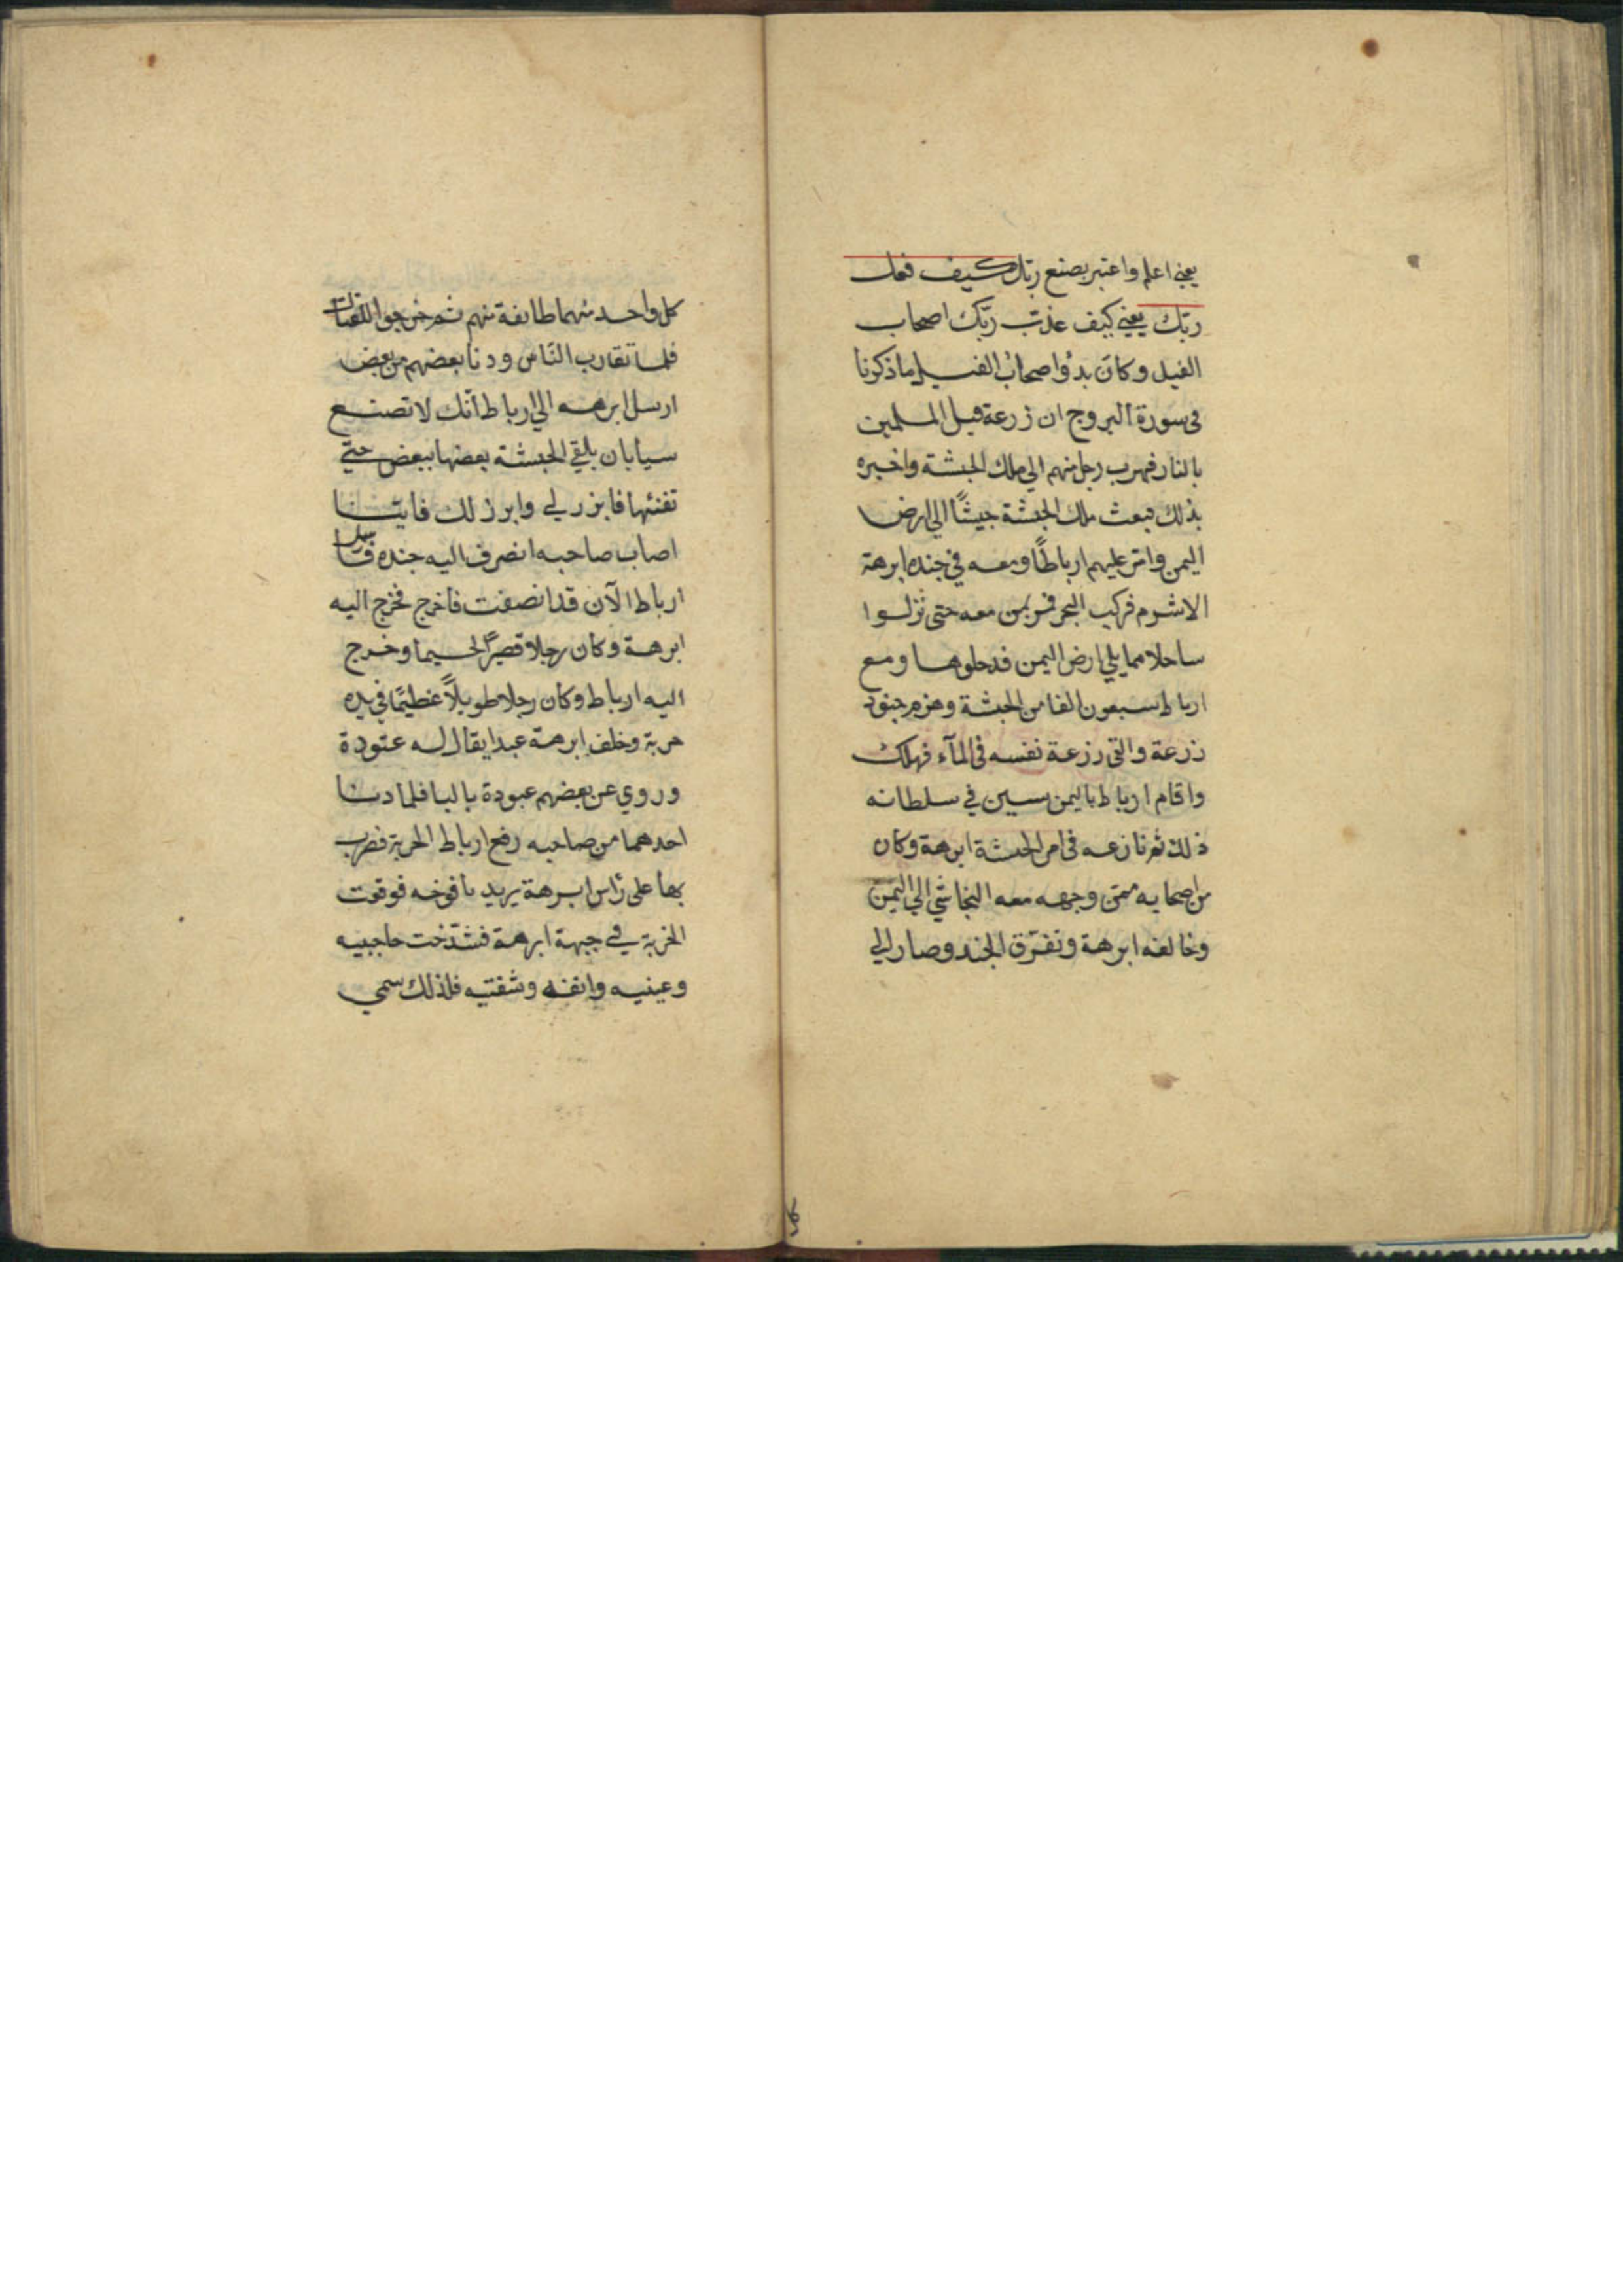 يعني اعلم واعتبر بصنع ربّك كيف فعل
ربّك يعني كيف عذّب ربّك اصحاب
الفيل وكان بدؤ اصحاب الفيل ما ذكرنا
في سورة البروج ان زرعة قبل المسلمين
بالنار فهرب رجل منهم الي ملك الحبشة واخبره
بذلك فبعث ملك الحبشة جيشًا الي ارض
اليمن وامر عليهم ارباطًا ومعه في جنده ابرهة
الاشرم فركب البحر فمر بمن معه حتى نزلوا
ساحلا مما يلي ارض اليمن فدخلوها ومع
ارباط سبعون الفا من الحبشة وهزم جنود
زرعة والقى زرعة نفسه في المآء فهلك
واقام ارباط باليمن سنين في سلطانه
ذلك ثم نازعه في امر الحبشة ابرهة وكان
من اصحابه ممن وجهه معه النجاشي الي اليمن
وخالفه ابرهة وتفرّق الجند وصار الي
كل واحد منهما طائفة منهم ثم خرجوا للقتال
فلما تقارب النّاس ودنا بعضهم من بعض
ارسل ابرهه الي ارباط انّك لا تصنع
سيأ بان يلقي الحبشة بعضها ببعض حتي
تفنئها فابرز لي وابرز لك فايّنا
اصاب صاحبه انصرف اليه جنده فارسل
ارباط الآن قد انصفت فاخرج فخرج اليه
ابرهة وكان رجلا قصيرًا لحسيما وخرج
اليه ارباط وكان رجلا طويلاً عظيمًا في يده
حربة وخلف ابرهة عبدا يقال له عتودة
وروي عن بعضهم عبودة بالبا فلما دنا
احدهما من صاحبه رفع ارباط الحربة فضرب
بها على رأس ابرهة يريد يافوخه فوقعت
الحربة في جبهة ابرهة فشدخت حاجبيه
وعينيه وانفه وشفتيه فلذلك سمي